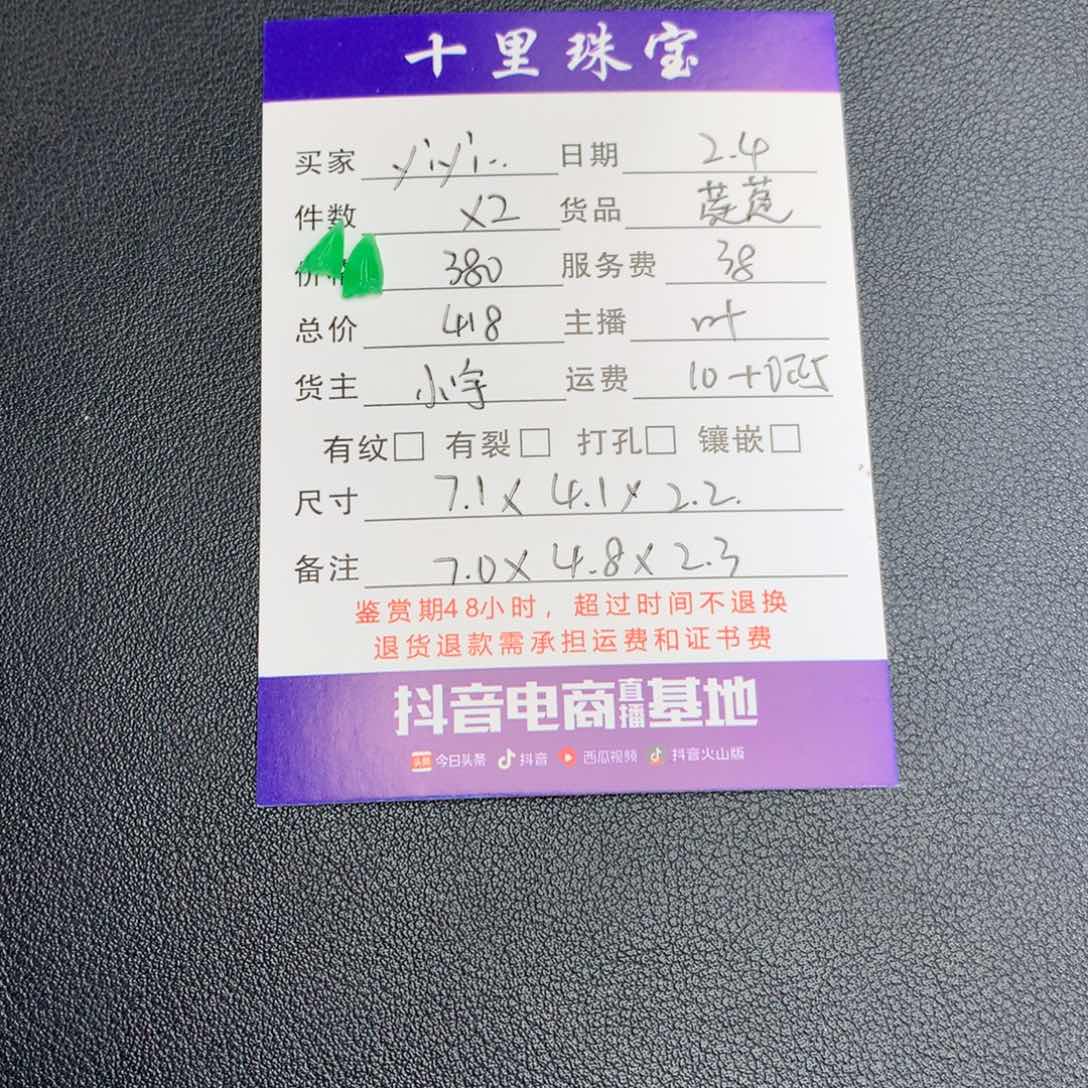 十里珠宝
买家 yiyi.. 日期 2.4
件数 x2 货品
价格 380 服务费 38
总价 418 主播
货主 小宇 运费 10+
有纹□ 有裂□ 打孔□ 镶嵌□
尺寸 7.1x 4.1x 2.2.
备注 7.0x 4.8x 2.3
鉴赏期48小时，超过时间不退换
退货退款需承担运费和证书费
抖音电商直播基地
头条 今日头条 抖音 西瓜视频 抖音火山版